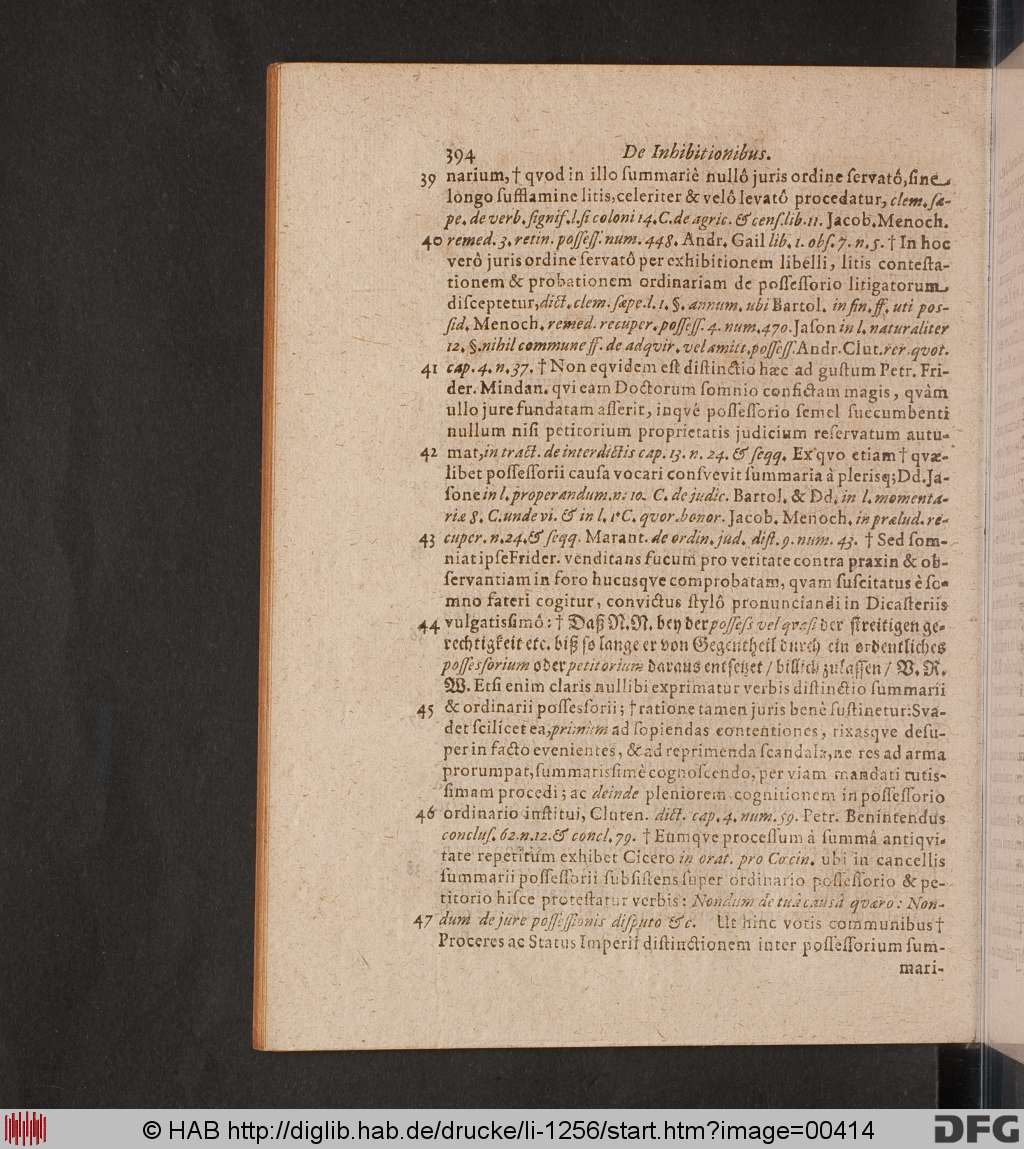 394 De Inhibitionibus.
39 narium, † qvod in illo ſummariè nullô juris ordine ſervatô, ſine
longo ſufflamine litis, celeriter & velô levatô procedatur, clem. ſæ-
pe. de verb. ſignif. l. ſi coloni 14. C. de agric. & cenſ. lib. 11. Jacob. Menoch.
40 remed. 3. retin. poſſeſſ. num. 448. Andr. Gail lib. 1. obſ. 7. n. 5. † In hoc
verò juris ordine ſervatô per exhibitionem libelli, litis conteſta-
tionem & probationem ordinariam de poſſeſſorio litigatorum
diſceptetur, dict. clem. ſæpe. l. 1. §. annum. ubi Bartol. in fin. ff. uti poſ-
ſid. Menoch. remed. recuper. poſſeſſ. 4. num. 470. Jaſon in l. naturaliter
12. §. nihil commune ff. de adqvir. vel amitt. poſſeſſ. Andr. Clut. rer. qvot.
41 cap. 4. n. 37. † Non eqvidem eſt diſtinctio hæc ad guſtum Petr. Fri-
der. Mindan. qvi eam Doctorum ſomnio confictam magis, qvàm
ullo jure fundatam aſſerit, inqve poſſeſſorio ſemel ſuccumbenti
nullum niſi petitorium proprietatis judicium reſervatum autu-
42 mat, in tract. de interdictis cap. 13. n. 24. & ſeqq. Ex qvo etiam † qvæ-
libet poſſeſſorii cauſa vocari conſvevit ſummaria à plerisq; Dd. Ja-
ſone in l. properandum. n. 10. C. de judic. Bartol. & Dd. in l. momenta-
riæ 8. C. unde vi. & in l. 1. C. qvor. bonor. Jacob. Menoch. in prælud. re-
43 cuper. n. 24. & ſeqq. Marant. de ordin. jud. diſt. 9. num. 43. † Sed ſom-
niat ipſe Frider. venditans fucum pro veritate contra praxin & ob-
ſervantiam in foro hucusqve comprobatam, qvam ſuſcitatus è ſo-
mno fateri cogitur, convictus ſtylô pronunciandi in Dicaſteriis
44 vulgatisſimô: † Daß N. N. bey der posſeſi vel qvaſi der ſtreitigen ge-
rechtigkeit etc. biß ſo lange er von Gegentheil durch ein ordentliches
posſesſorium oder petitorium daraus entſetzet / billich zulaſſen / V. R.
W. Etſi enim claris nullibi exprimatur verbis diſtinctio ſummarii
45 & ordinarii poſsesſorii; † ratione tamen juris benè ſuſtinetur: Sva-
det ſcilicet ea, primùm ad ſopiendas contentiones, rixasqve deſu-
per in facto evenientes, & ad reprimenda ſcandala, ne res ad arma
prorumpat, ſummarisſimè cognoſcendo, per viam mandati tutis-
ſimam procedi; ac deinde pleniorem cognitionem in poſſeſſorio
46 ordinario inſtitui, Cluten. dict. cap. 4. num. 59. Petr. Benintendus
concluſ. 62. n. 12. & concl. 79. † Eumqve proceſſum à ſummâ antiqvi-
tate repetitum exhibet Cicero in orat. pro Cœcin. ubi in cancellis
ſummarii poſſeſſorii ſubſiſtens ſuper ordinario poſſeſſorio & pe-
titorio hiſce proteſtatur verbis: Nondum de tuâ causâ qværo: Non-
47 dum de jure poſſeſſionis diſputo &c. Ut hinc votis communibus †
Proceres ac Status Imperii diſtinctionem inter poſſeſſorium ſum-
mari-
© HAB http://diglib.hab.de/drucke/li-1256/start.htm?image=00414
DFG